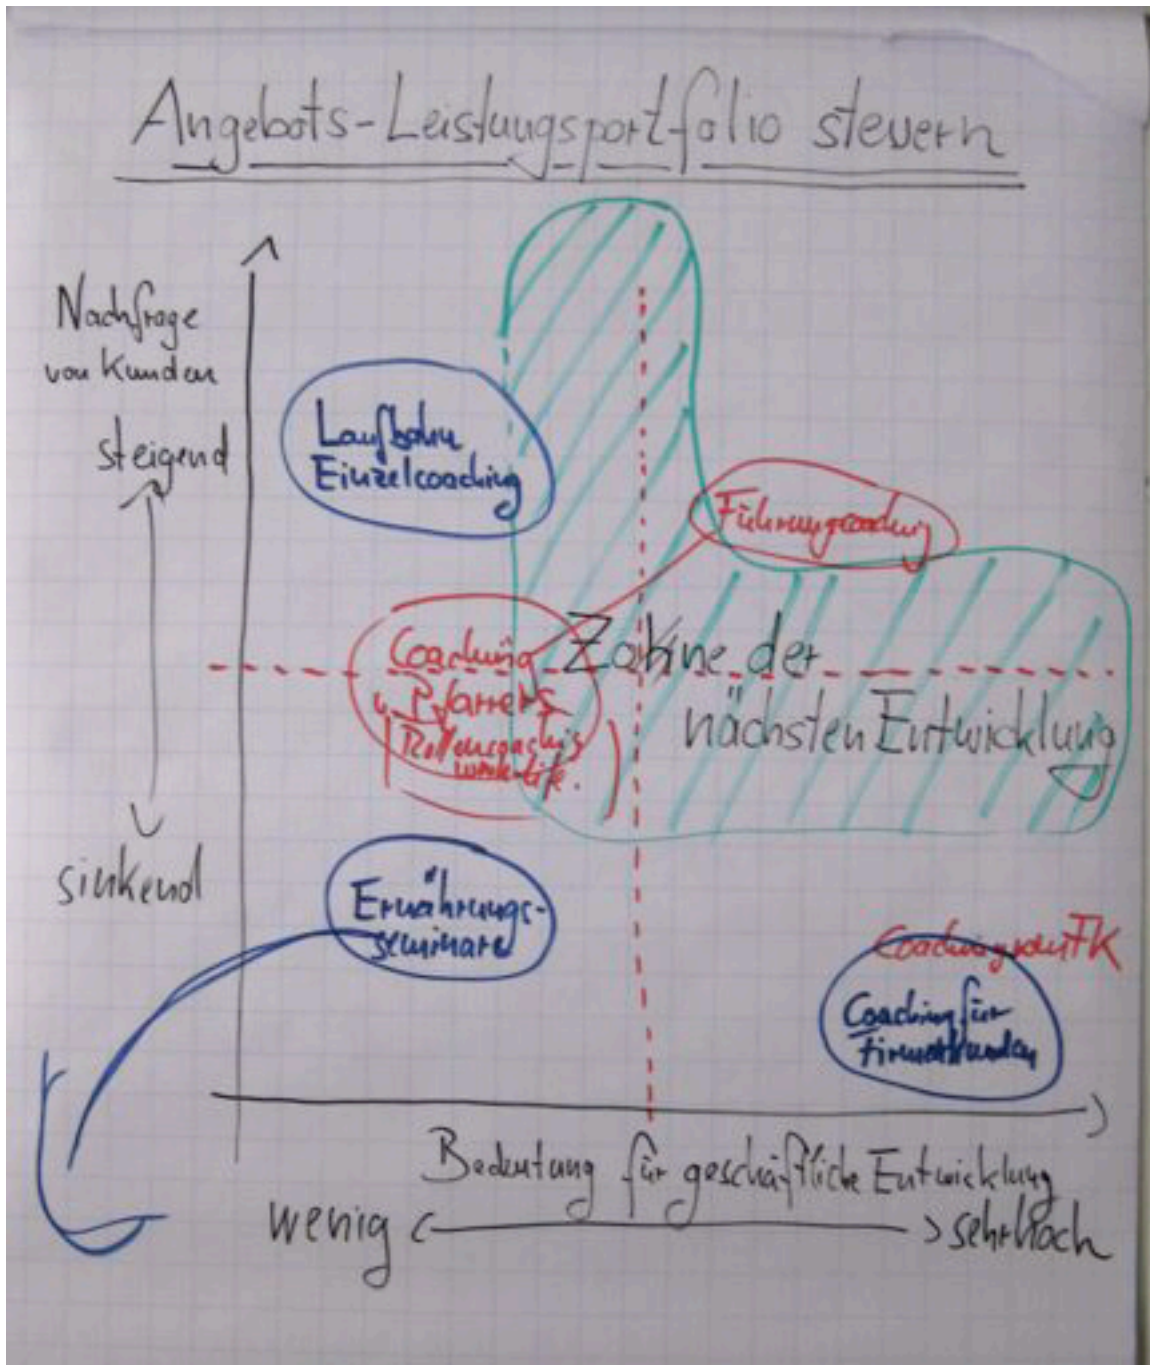 Angebots-Leistungsportfolio steuern
Nachfrage
von Kunden
steigend
sinkend
Laufbahn
Einzelcoaching
Führungscoaching
Coaching
Pfarrers
Rollencoaching
work-Life.
Zone der
nächsten Entwicklung
Ernährungs-
seminare
Coaching FK
Coaching für
Firmenkunden
Bedeutung für geschäftliche Entwicklung
wenig
sehr hoch